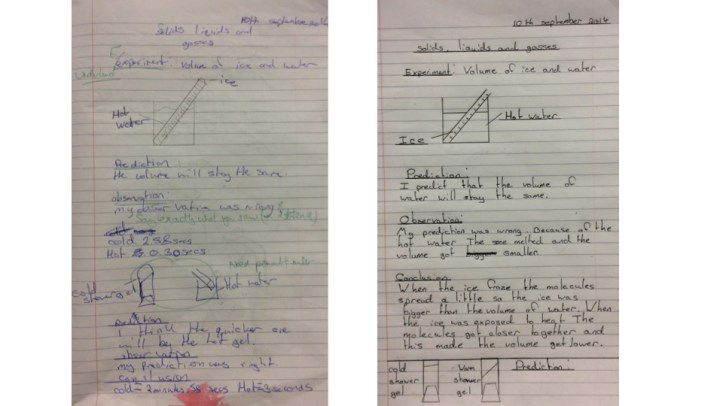 10th september 2014
Solids liquids and
gasses
Experiment: Volume of ice and water
ice
Hot
water
Prediction
the volume will stay the same
observation:
my observation was wrong
say exactly what you saw
cold 2.58secs
Hot 0.30secs
cold
shower gel
Hot water
I think the quicker one
will be the hot gel.
observation
my prediction was right
conclusion
10th september 2014
Solids, liquids and gasses
Experiment: Volume of ice and water
Hot water
Ice
Prediction:
I predict that the volume of
water will stay the same.
Observation:
My prediction was wrong. Because of the
hot water The ice melted and the
volume got smaller.
Conclusion
When the ice froze the molecules
spread a little so the ice was
bigger than the volume of water. When
the ice was exposed to heat The
molecules got closer together and
this made the volume get lower.
cold
shower
gel
shower
gel
Prediction.